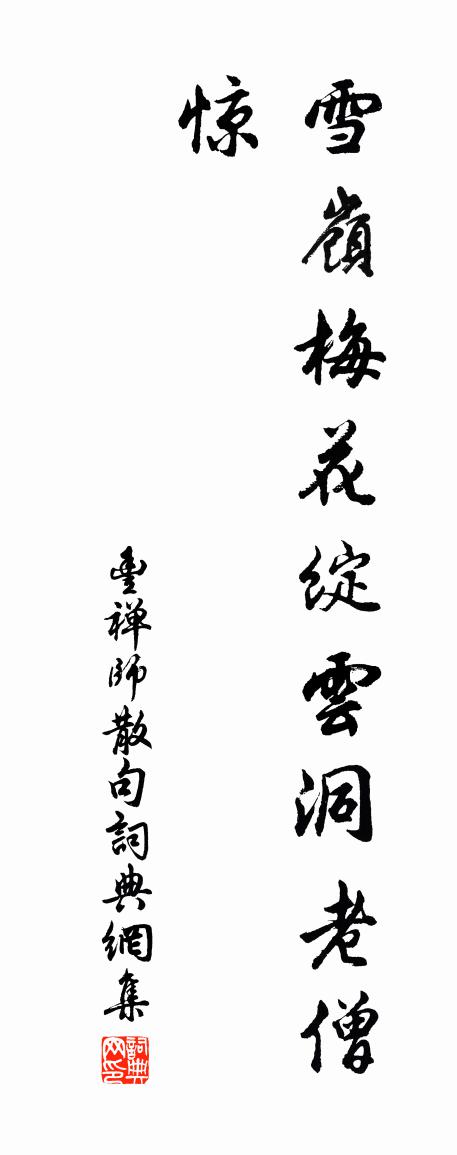 雪嶺梅花綻雲洞老僧
惊
豐禅師散句詞典網集
詞典网印